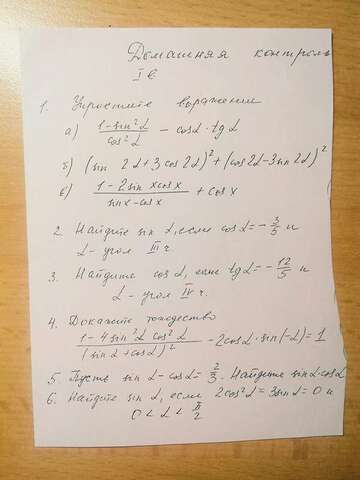 Домашняя контроль
I в
1. Упростите выражении
а) (1-sin²α)/(cos²α) - cosα·tgα
б) (sin 2α+3cos2α)²+(cos2α-3sin2α)²
в) (1-2sinxcosx)/(sinx-cosx) + cosx
2. Найдите sinα, если cosα=-3/5 и
α-угол III ч.
3. Найдите cosα, если tgα=-12/5 и
α-угол IV ч.
4. Докажите тождество
(1-4sin²α cos²α)/(sinα+cosα)² - 2cosα·sin(-α)=1
5. Пусть sinα-cosα=2/3. Найдите sinα·cosα
6. Найдите sinα, если 2cos²α=3sinα=0 и
0<α<π/2